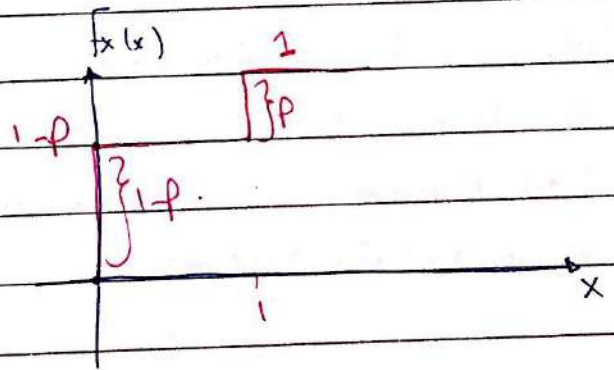 fx(x)
1
}p
1-p
}1-p.
x
1